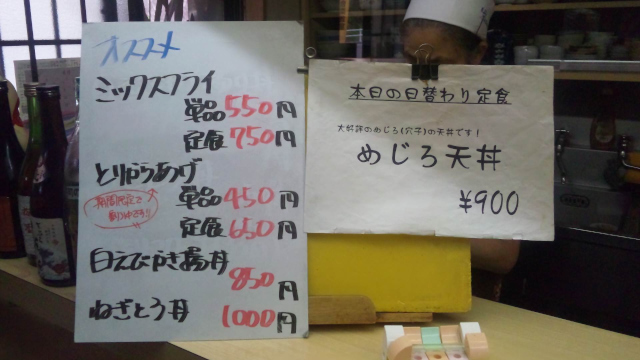 オススメ
ミックスフライ
単品 550円
定食 750円
とりからあげ
単品 450円
定食 650円
期間限定で
白えびかき揚丼
850円
ねぎとろ丼
1000円
本日の日替わり定食
大好評のめじろ(穴子)の天丼です!
めじろ天丼
¥900